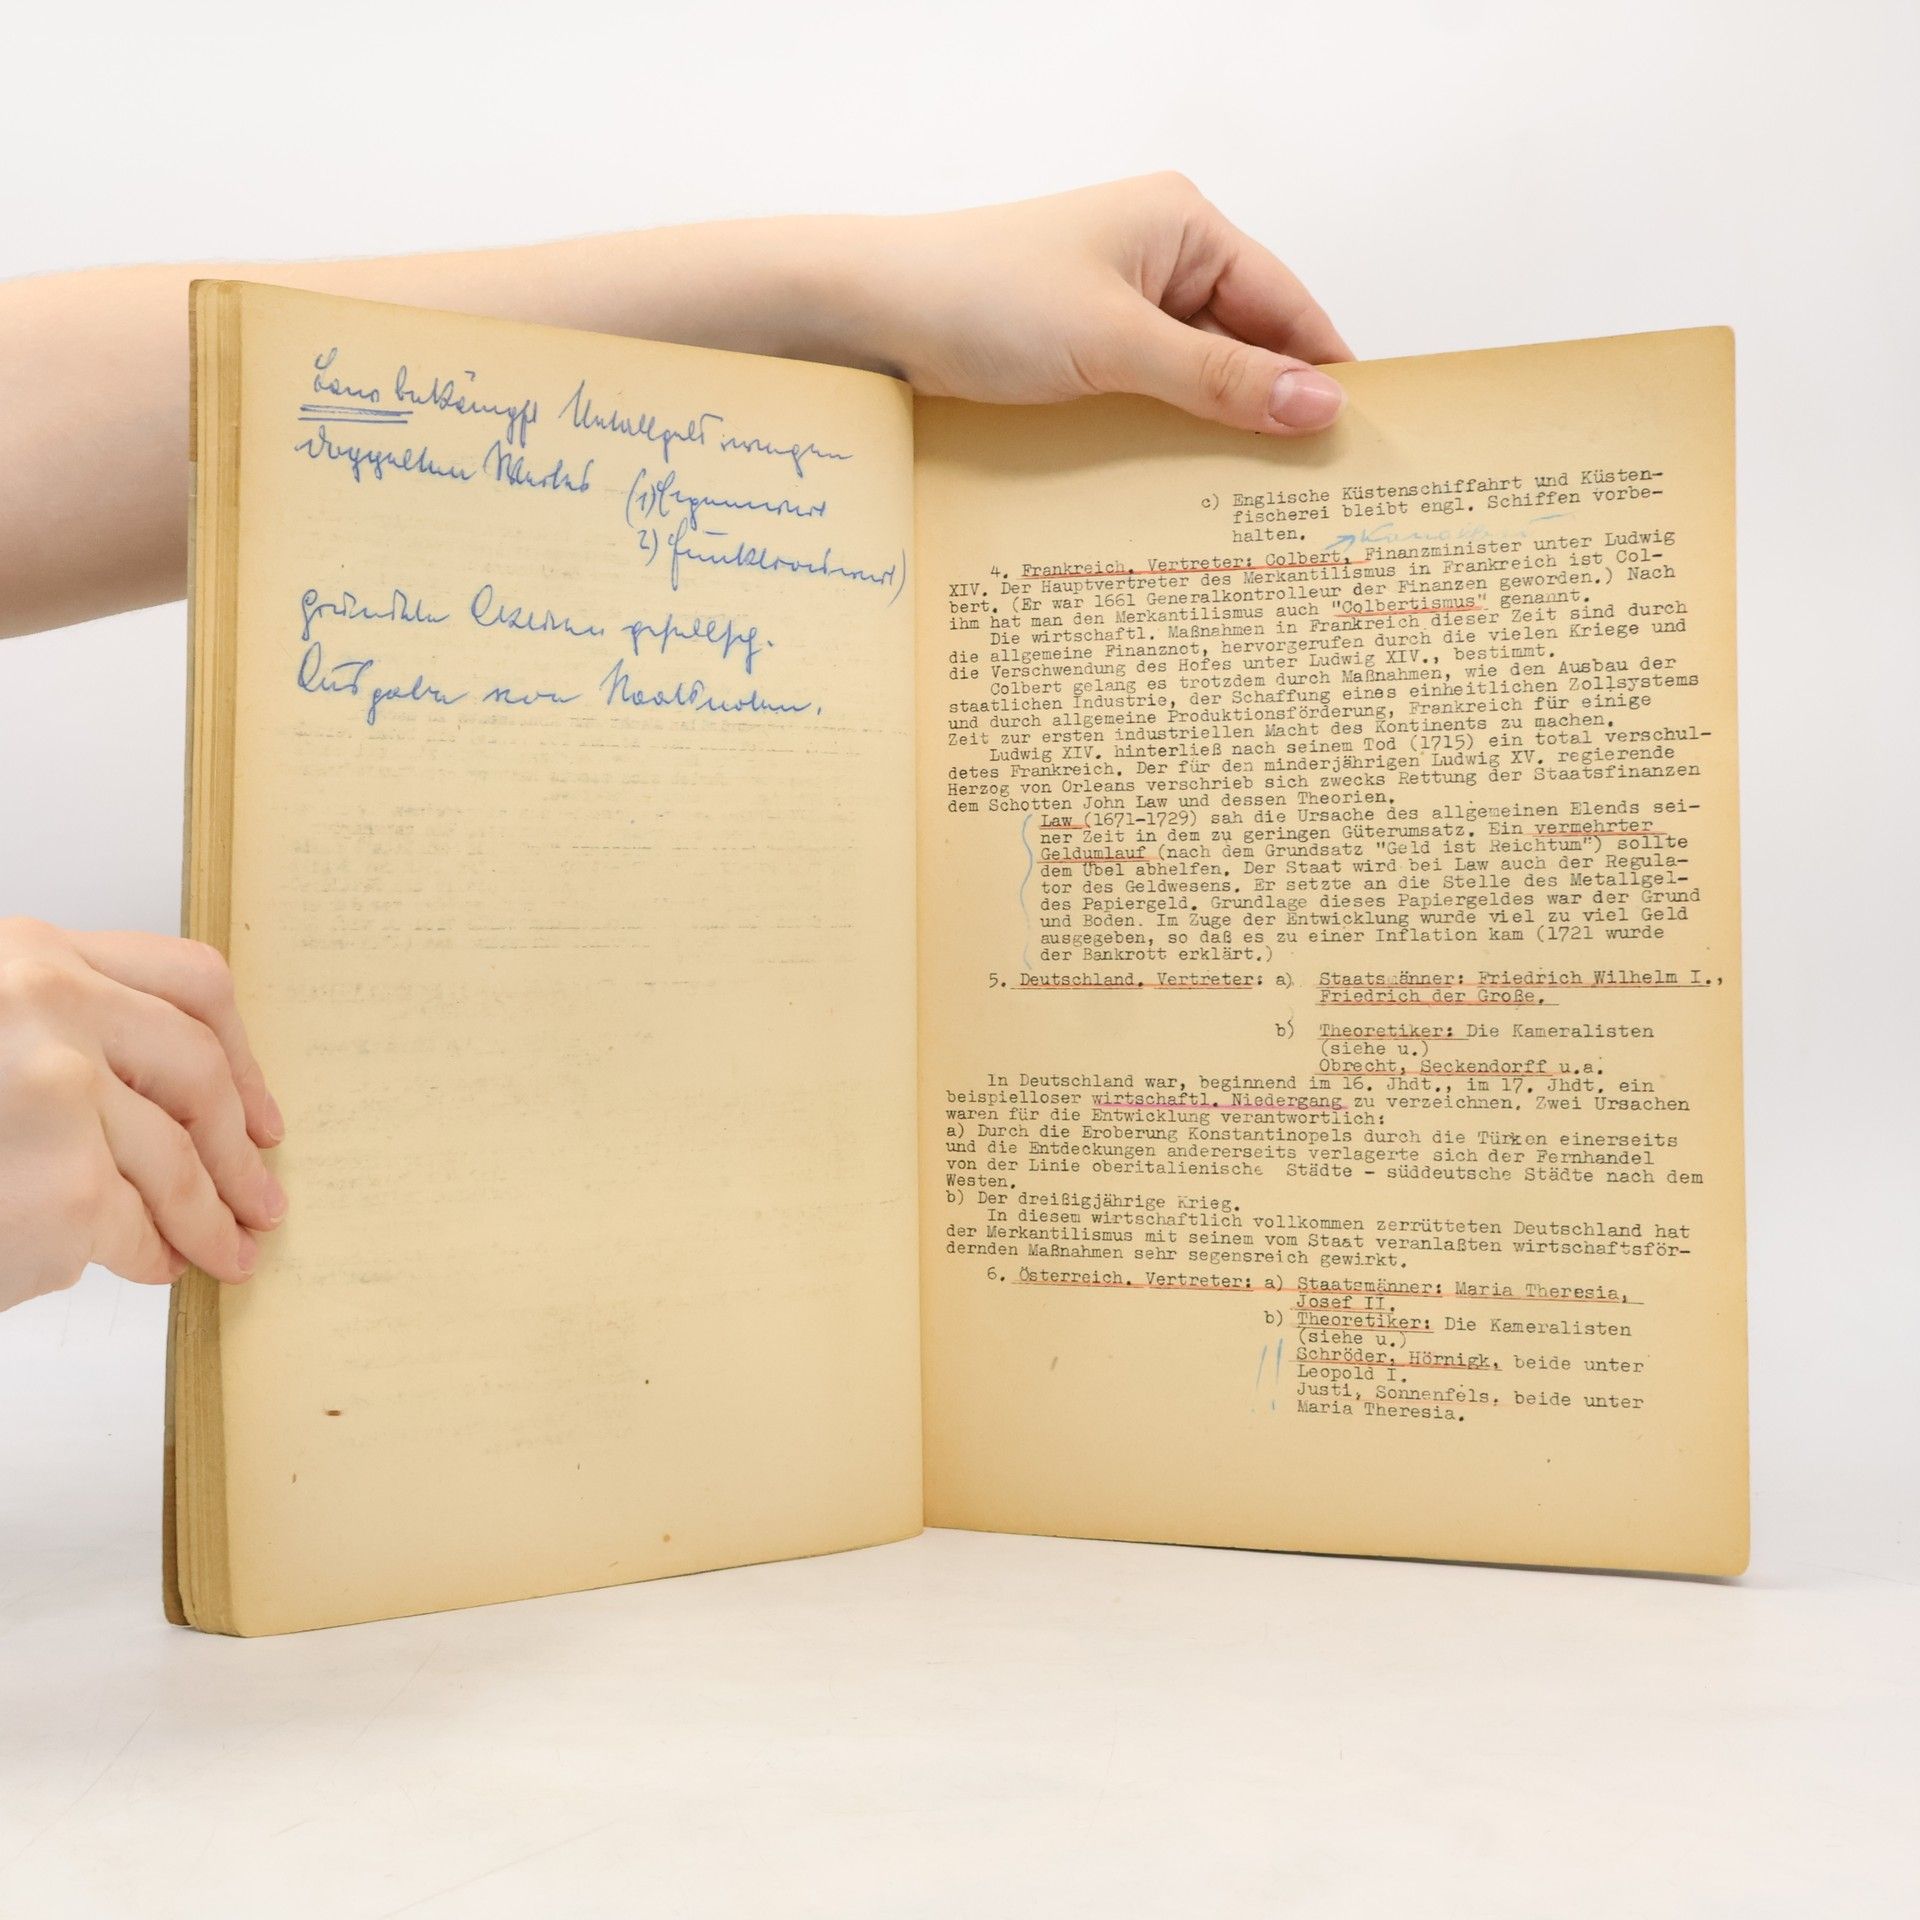 Law bekämpft Metallgeld wegen
doppelten Wertes (1) Eigenwert
2) Funktionswert)
gründete Aktien gesellsch.
Ausgaben von Staatsnoten.
c) Englische Küstenschiffahrt und Küsten-
fischerei bleibt engl. Schiffen vorbe-
halten.
4. Frankreich. Vertreter: Colbert, Finanzminister unter Ludwig
XIV. Der Hauptvertreter des Merkantilismus in Frankreich ist Col-
bert. (Er war 1661 Generalkontrolleur der Finanzen geworden.) Nach
ihm hat man den Merkantilismus auch "Colbertismus" genannt.
Die wirtschaftl. Maßnahmen in Frankreich dieser Zeit sind durch
die allgemeine Finanznot, hervorgerufen durch die vielen Kriege und
die Verschwendung des Hofes unter Ludwig XIV., bestimmt.
Colbert gelang es trotzdem durch Maßnahmen, wie den Ausbau der
staatlichen Industrie, der Schaffung eines einheitlichen Zollsystems
und durch allgemeine Produktionsförderung, Frankreich für einige
Zeit zur ersten industriellen Macht des Kontinents zu machen.
Ludwig XIV. hinterließ nach seinem Tod (1715) ein total verschul-
detes Frankreich. Der für den minderjährigen Ludwig XV. regierende
Herzog von Orleans verschrieb sich zwecks Rettung der Staatsfinanzen
dem Schotten John Law und dessen Theorien.
Law (1671-1729) sah die Ursache des allgemeinen Elends sei-
ner Zeit in dem zu geringen Güterumsatz. Ein vermehrter
Geldumlauf (nach dem Grundsatz "Geld ist Reichtum") sollte
dem Übel abhelfen. Der Staat wird bei Law auch der Regula-
tor des Geldwesens. Er setzte an die Stelle des Metallgel-
des Papiergeld. Grundlage dieses Papiergeldes war der Grund
und Boden. Im Zuge der Entwicklung wurde viel zu viel Geld
ausgegeben, so daß es zu einer Inflation kam (1721 wurde
der Bankrott erklärt.)
5. Deutschland. Vertreter: a) Staatsmänner: Friedrich Wilhelm I.,
Friedrich der Große.
b) Theoretiker: Die Kameralisten
(siehe u.)
Obrecht, Seckendorff u.a.
In Deutschland war, beginnend im 16. Jhdt., im 17. Jhdt. ein
beispielloser wirtschaftl. Niedergang zu verzeichnen. Zwei Ursachen
waren für die Entwicklung verantwortlich:
a) Durch die Eroberung Konstantinopels durch die Türken einerseits
und die Entdeckungen andererseits verlagerte sich der Fernhandel
von der Linie oberitalienische Städte - süddeutsche Städte nach dem
Westen.
b) Der dreißigjährige Krieg.
In diesem wirtschaftlich vollkommen zerrütteten Deutschland hat
der Merkantilismus mit seinem vom Staat veranlaßten wirtschaftsför-
dernden Maßnahmen sehr segensreich gewirkt.
6. Österreich. Vertreter: a) Staatsmänner: Maria Theresia,
Josef II.
b) Theoretiker: Die Kameralisten
(siehe u.)
Schröder, Hörnigk, beide unter
Leopold I.
Justi, Sonnenfels, beide unter
Maria Theresia.